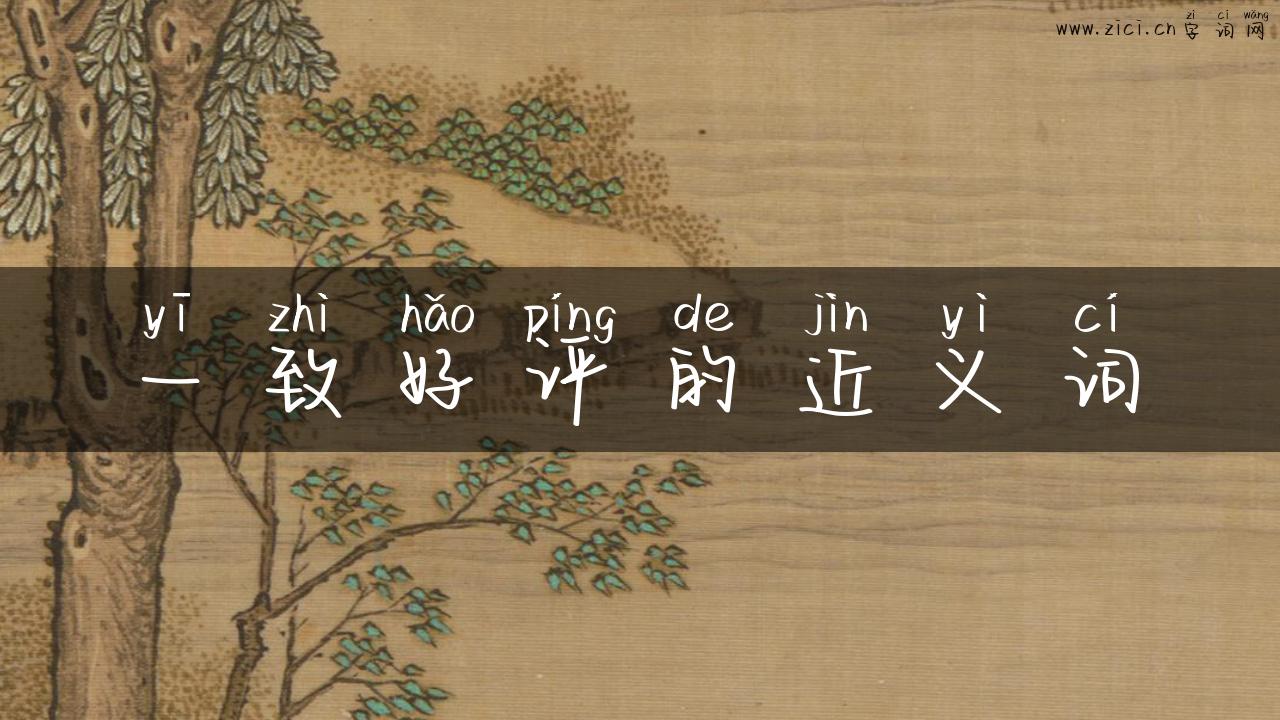 zì cí wǎng
www.zici.cn 字词网
yī zhì hǎo píng de jìn yì cí
一致好评的近义词